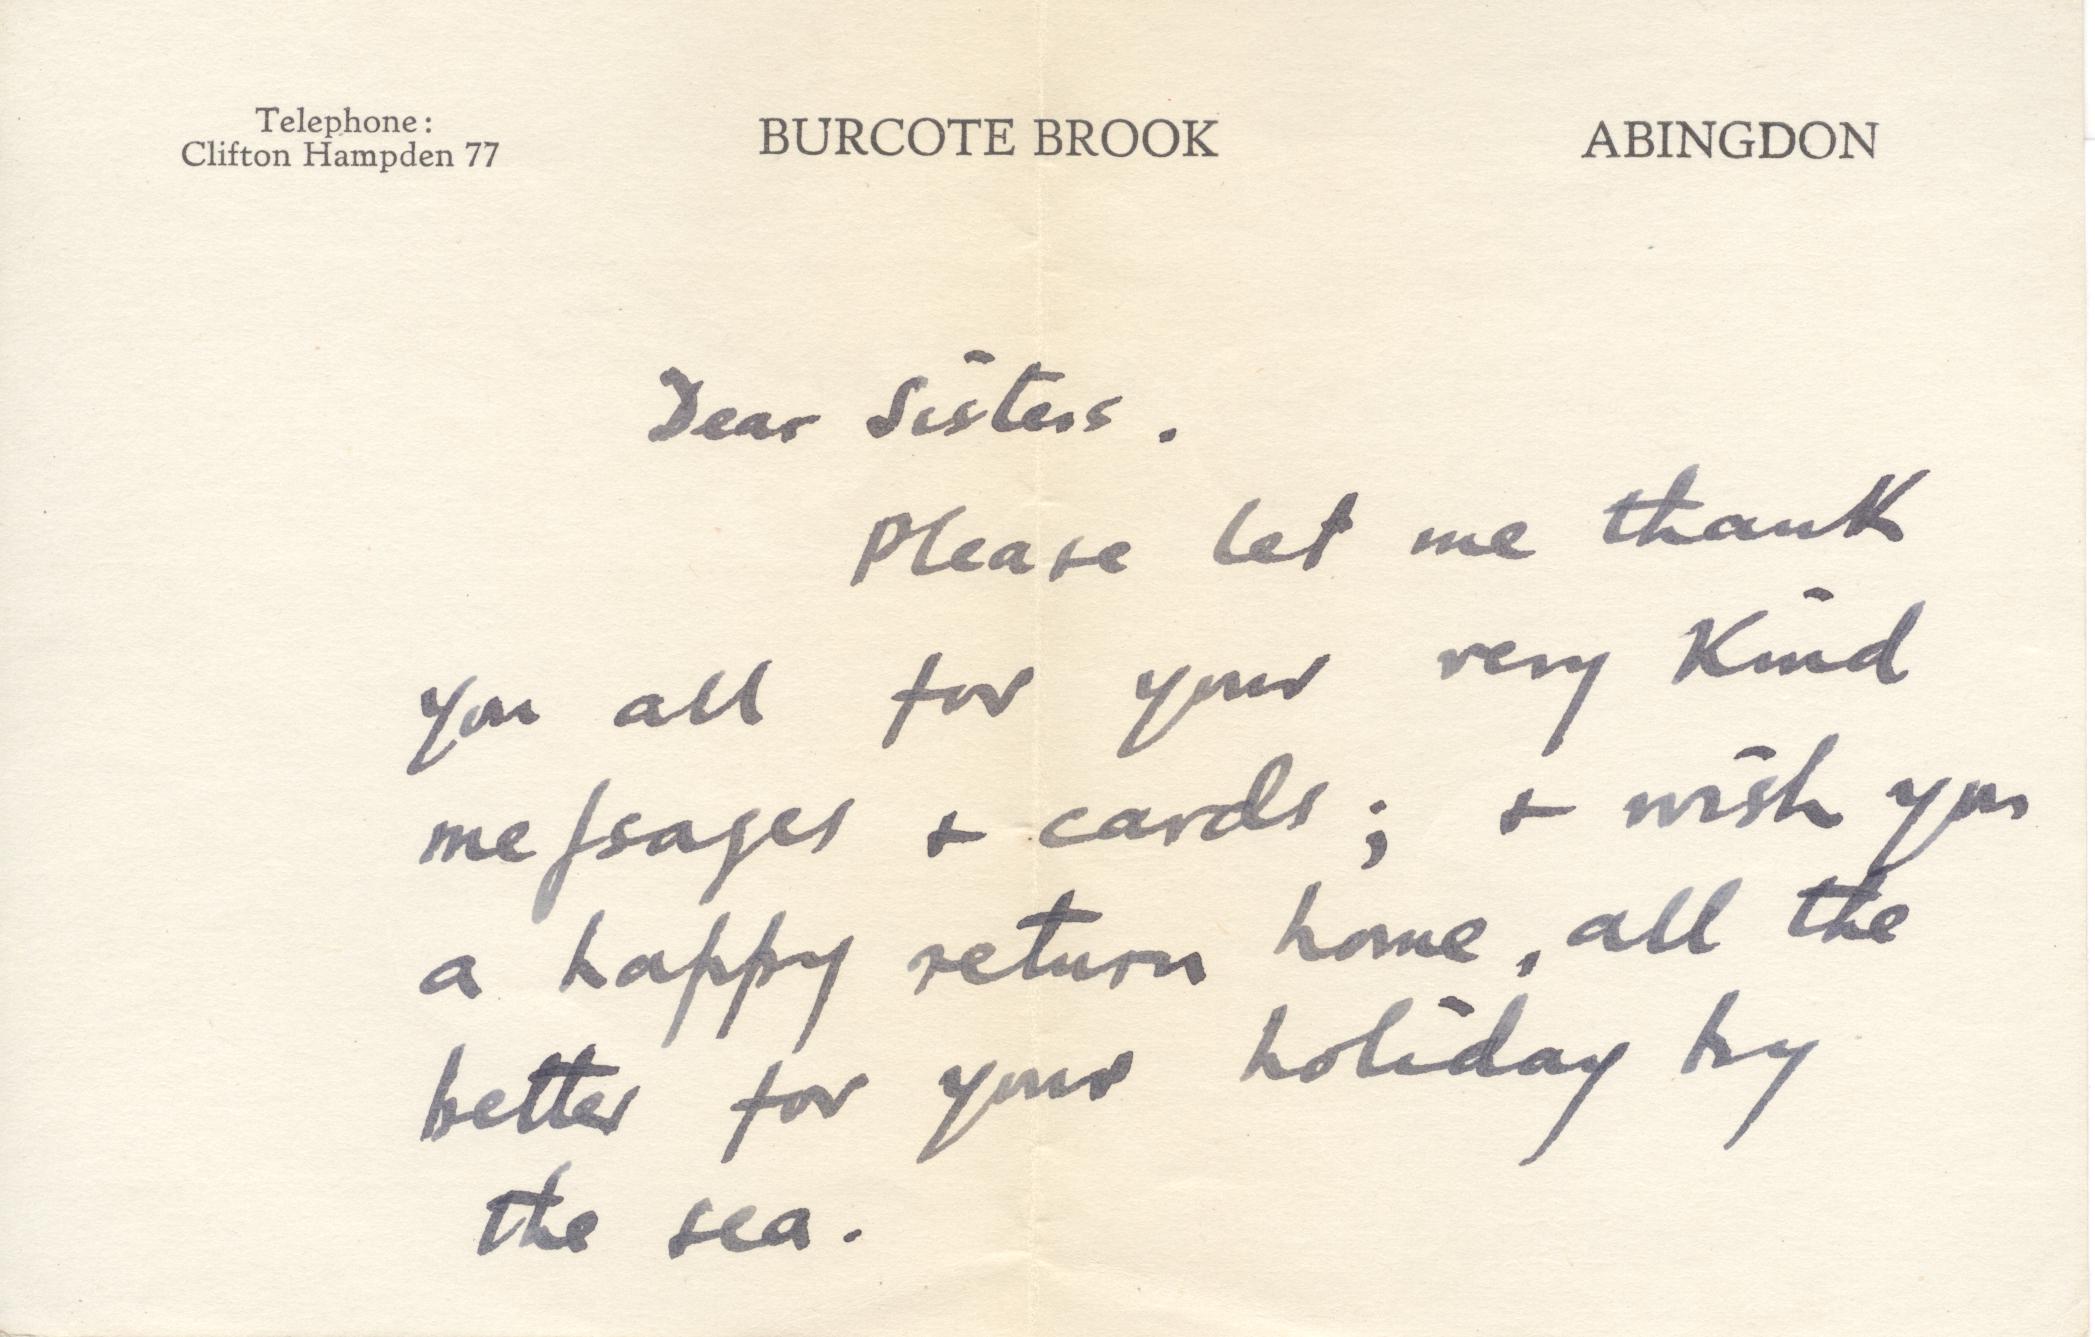 Telephone:
Clifton Hampden 77
BURCOTE BROOK
ABINGDON
Dear Sisters.
Please let me thank
you all for your very kind
meſsages + cards; + wish you
a happy return home, all the
better for your holiday by
the sea.